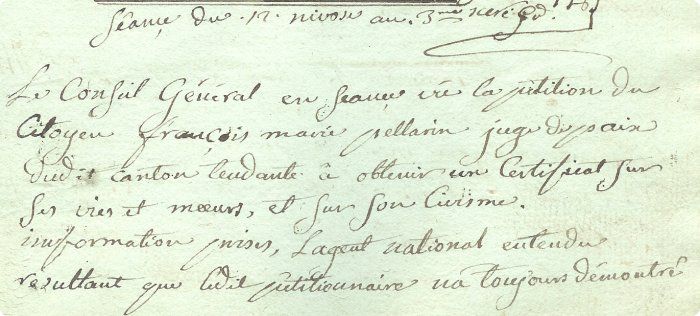 séance du 12 nivose an 3me
Le Conseil Général en seance vu la pétition du
Citoyen françois marie pellarin juge de paix
dudit canton tendante à obtenir un Certificat sur
ses vies et mœurs, et sur son Civisme.
information prises, Lagent national entendu
resultant que ledit petitionnaire na toujours démontré